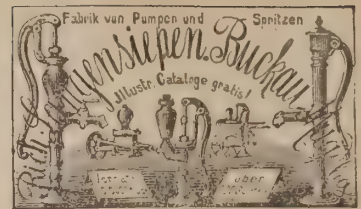 Fabrik von Pumpen und Spritzen
Rich. Langensiepen. Buckau
Jllustr. Cataloge gratis!
über